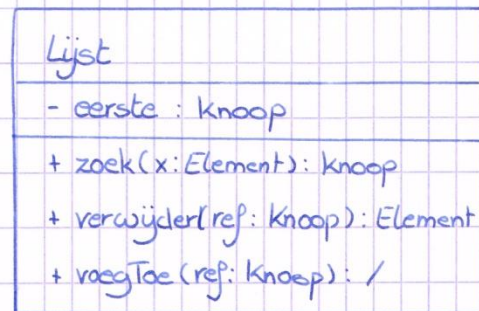 Lijst
- eerste : Knoop
+ zoek(x: Element): Knoop
+ verwijder(ref: Knoop): Element
+ voegToe(ref: Knoop): /